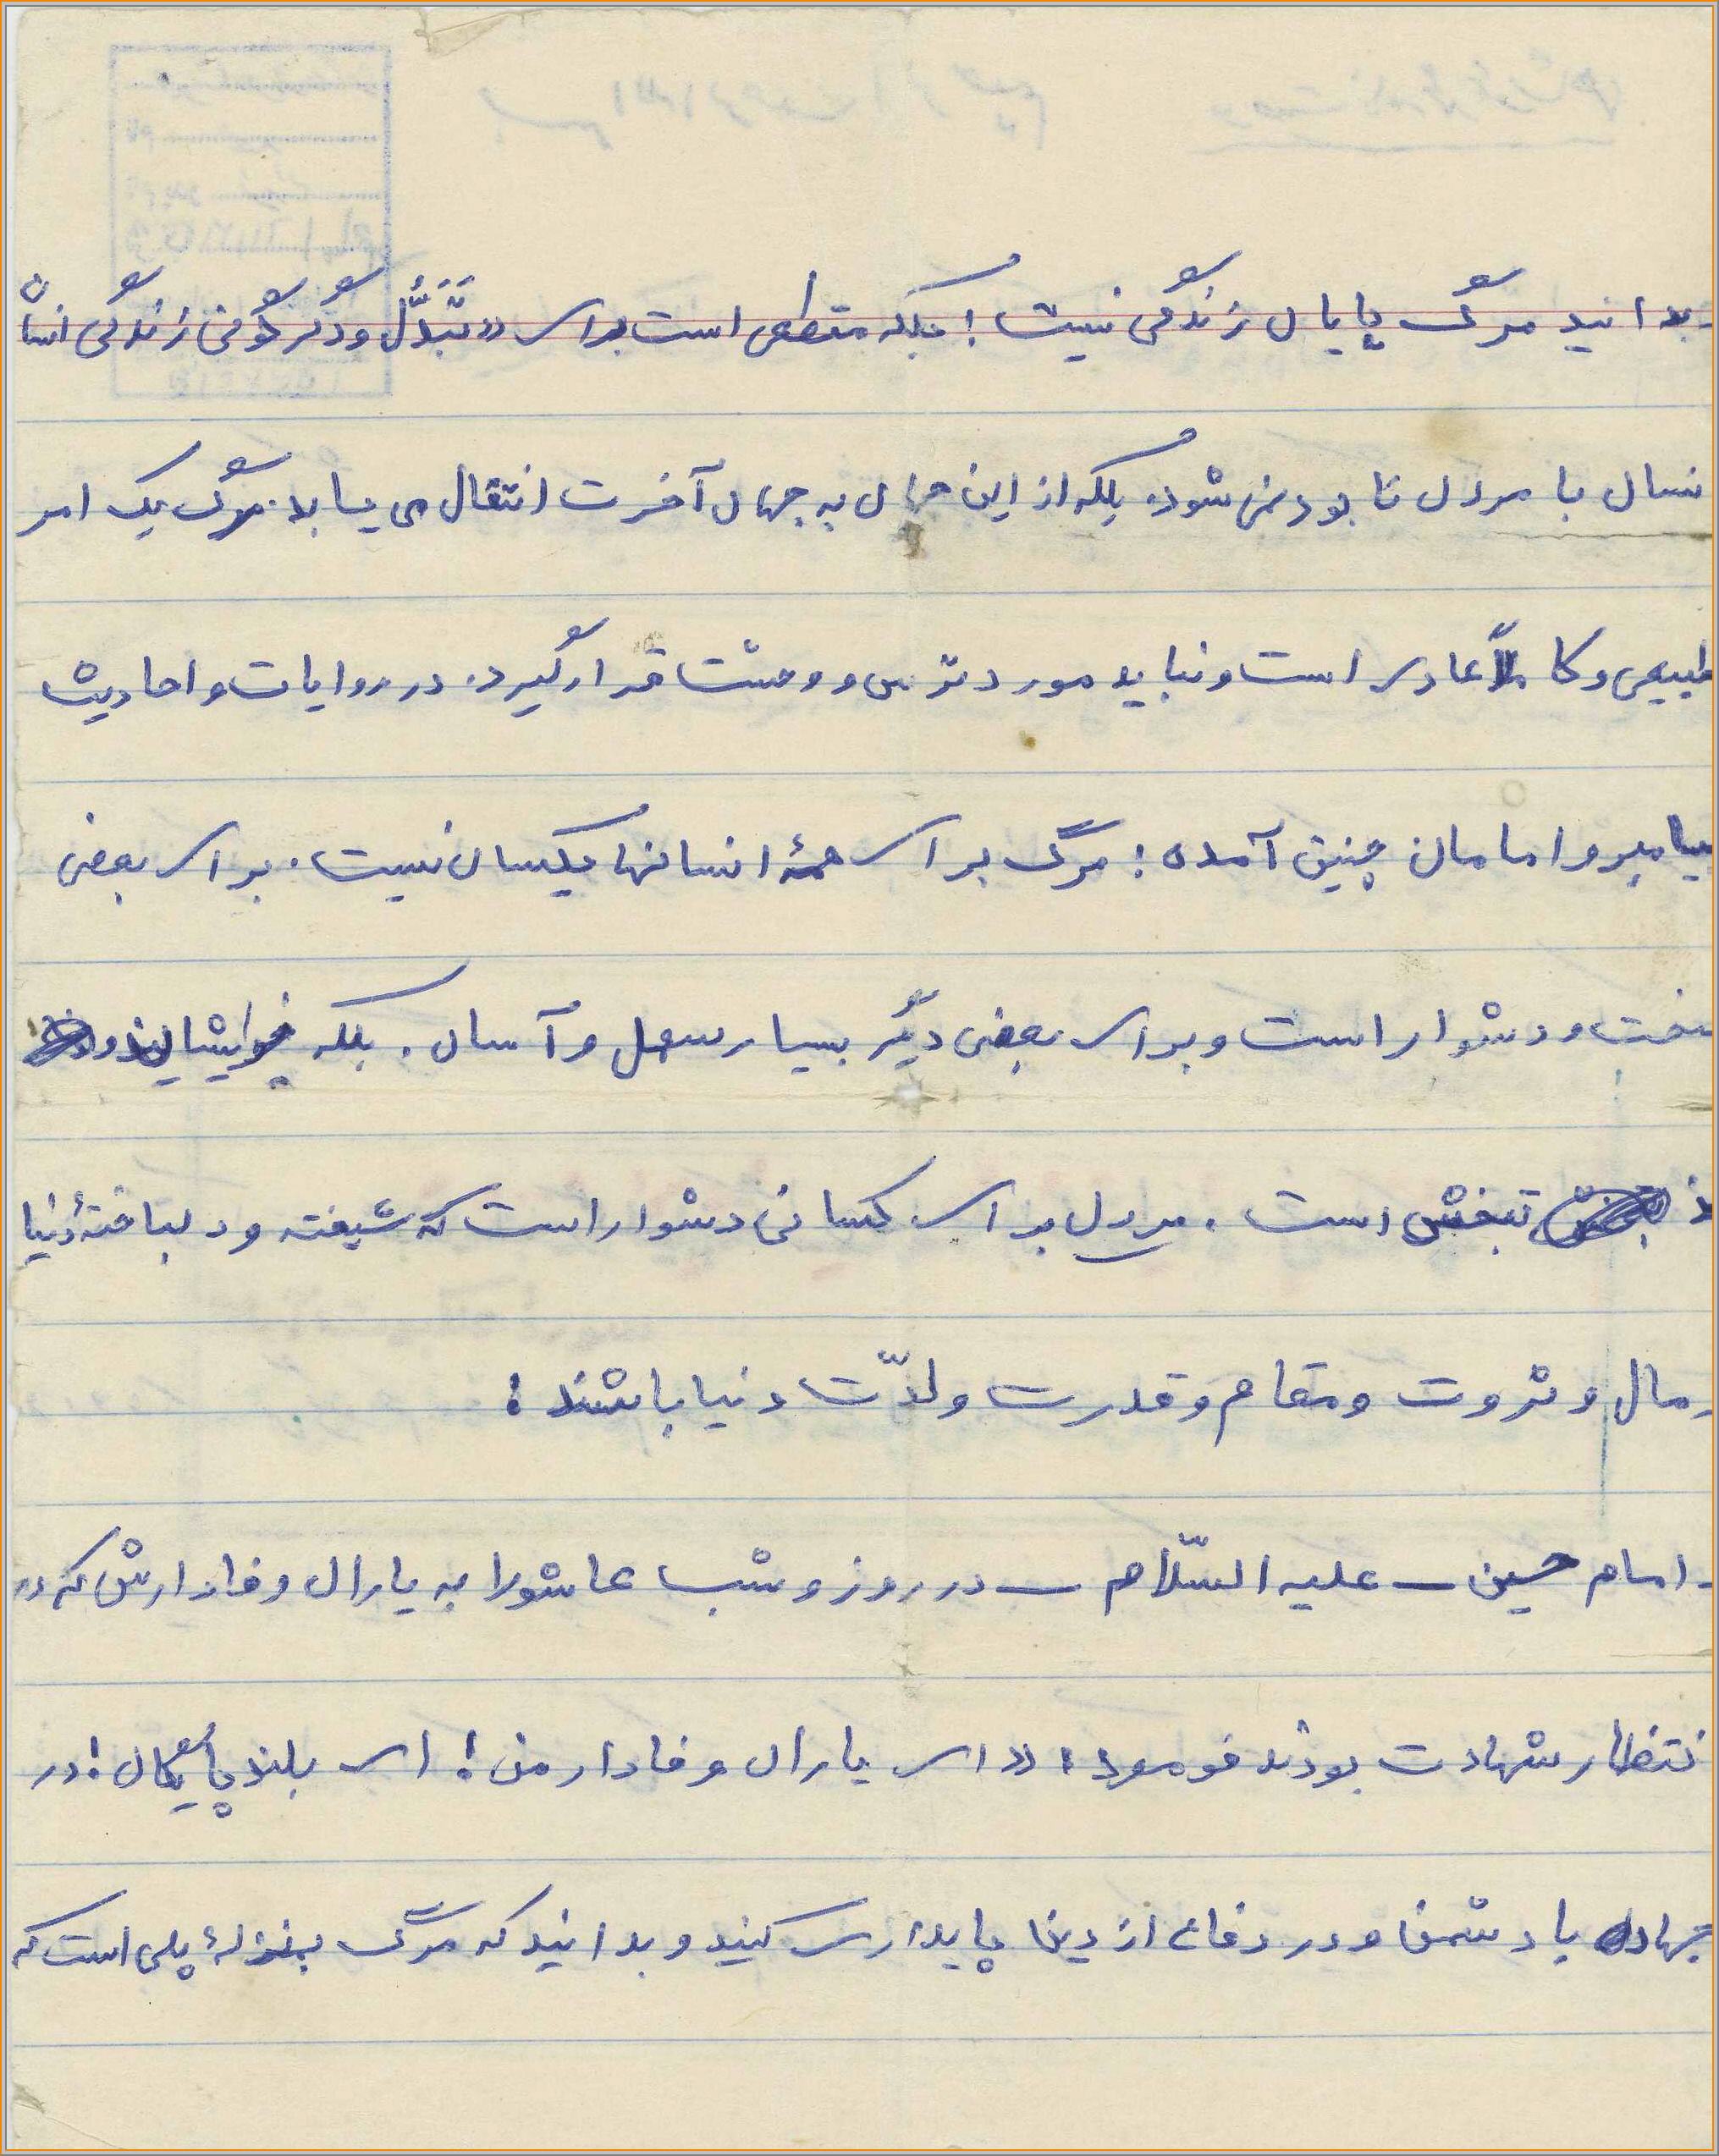 بدانید مرگ پایان زندگی نیست؛ بلکه مقطعی است برای «تَبَدُّل و دگرگونی زندگی انسان
نسان با مردن نابود نمی‌شود. بلکه از این جهان به جهان آخرت انتقال می یابد. مرگ یک امر
طبیعی و کاملاً عادی است و نباید مورد ترس و وحشت قرار گیرد. در روایات و احادیث
پیامبر و امامان چنین آمده: مرگ برای همهٔ انسانها یکسان نیست. برای بعضی
سخت و دشوار است و برای بعضی دیگر بسیار سهل و آسان. بلکه
تبخش است. مردن برای کسانی دشوار است که شیفته و دلباختهٔ دنیا
مال و ثروت و مقام و قدرت و لذّت دنیا باشند:
امام حسین – علیه السّلام – در روز و شب عاشورا به یاران وفادارش که در
نتظار شهادت بودند فرمود: «ای یاران وفادار من! ای بلند پایگان! در
جهاد با دشمن و در دفاع از دین پایداری کنید و بدانید که مرگ بمنزلهٔ پلی است که